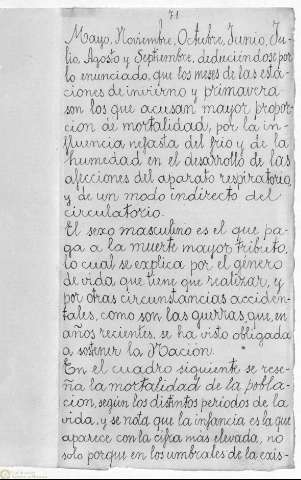 71
Mayo, Noviembre, Octubre, Junio, Ju-
lio, Agosto y Septiembre, deduciendose por
lo enunciado, que los meses de las esta-
ciones de invierno y primavera
son los que acusan mayor propor-
cion de mortalidad, por la in-
fluencia nefasta del frio y de la
humedad en el desarrollo de las
afecciones del aparato respiratorio,
y de un modo indirecto del
circulatorio.
El sexo masculino es el que pa-
ga a la muerte mayor tributo,
lo cual se explica por el género
de vida que tiene que realizar, y
por otras circunstancias acciden-
tales, como son las guerras que, en
años recientes, se ha visto obligada
a sostener la Nacion.
En el cuadro siguiente se rese-
ña la mortalidad de la pobla-
cion, según los distintos periodos de la
vida, y se nota que la infancia es la que
aparece con la cifra más elevada, no
solo porque en los umbrales de la exis-